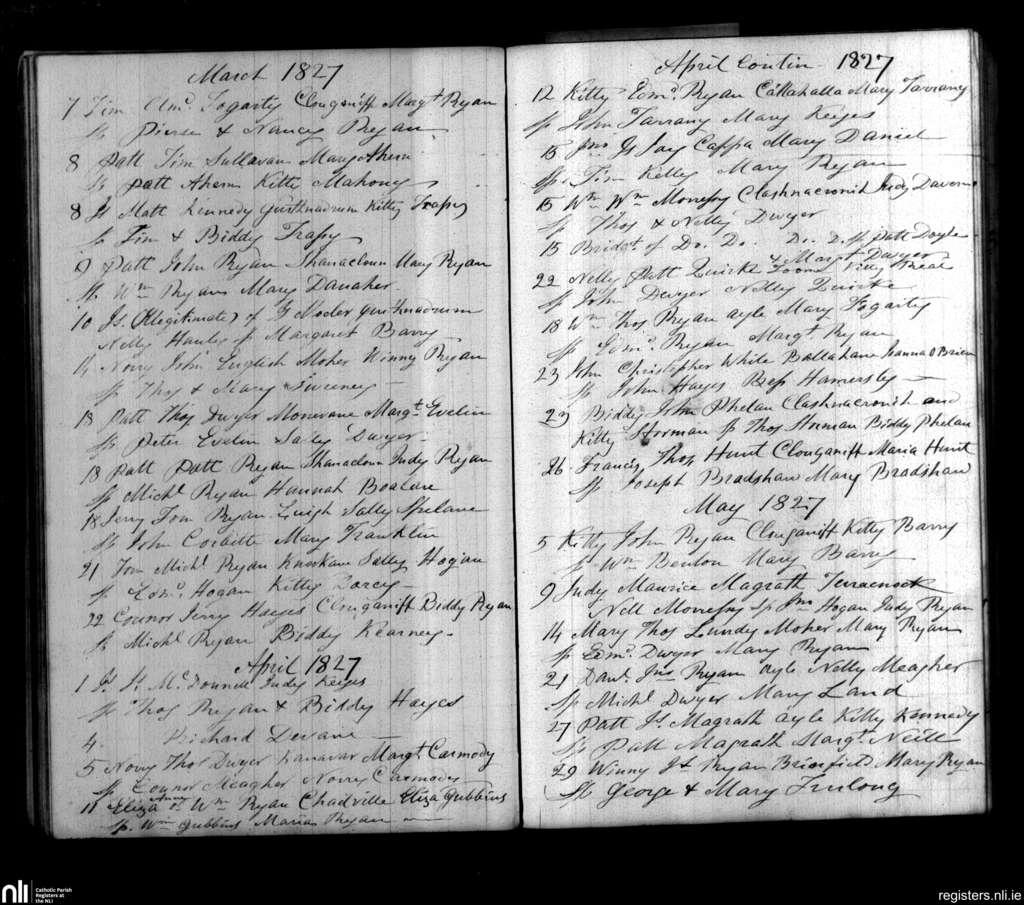 March 1827
7 Tim Edmd. Fogarty Clonganiff Margt Ryan
Sp Pierse & Nancy Ryan
8 Patt Tim Sullavan Mary Ahern
Sp Patt Ahern Kitte Mahony
8 Js Matt Kennedy Gurthnadrum Kitty Trassy
Sp Tim & Biddy Trassy
9 Patt John Ryan Shanacloun Mary Ryan
Sp Wm Ryan Mary Danaher
10 Js. (Illegitimate) of Gurthnadrum
Nelly Sp Margaret Barry
Nory John English Moher Winny Ryan
Sp Thos & Mary Sweeney
18 Patt Thos Dwyer Monevane Margt. Evelin
Sp Peter Evelin Sally Dwyer
18 Patt Patt Ryan Shanacloun Judy Ryan
Sp Michl Ryan Hannah
18 Jerry Tom Ryan Sally Spelane
Sp John Corbitte Mary Franklin
21 Tom Michl Ryan Sally Hogan
Sp Edmd. Hogan Kitty Darcy
22 Connor Jerry Hayes Clonganiff Biddy Ryan
Sp Michl Ryan Biddy Kearney
April 1827
1 Js. Js. McDonnell Judy Keiges
Sp Thos Ryan & Biddy Hayes
4. Richard Devane
5 Norry Thos Dwyer Margt. Carmody
Sp Connor Meagher Norry Carmody
11 Eliza Wm Ryan Chadville Eliza Gubbins
Sp. Wm Gubbins Maria Ryan
April Contin 1827
12 Kitty Edmd. Ryan Callahalla Mary Tarrany
Sp John Tarrany Mary Keiges
15 Jno Js Joy Cappa Mary Daniel
Sp. Tim Kelly Mary Ryan
15 Wm Wm Monessy Clashnacronit Judy Davoren
Sp Thos & Nelly Dwyer
15 Bridgt of Do. Do. Do. D. Sp Patt Doyle
& Margt Dwyer
22 Nelly Patt Quirke Toom Kitty Theal
Sp John Dwyer Nelly Quirke
18 Wm Thos Ryan Ayle Mary Fogarty
Sp Edmd. Ryan Margt. Ryan
23 John Christopher White Ballahane Hanna O Brien
Sp John Hayes Bess Hamersly
23 Biddy John Phelan Clashnacronit and
Kitty Sp Thos Biddy Phelan
26 Francis Thos Hunt Clonganiff Maria Hunt
Sp Joseph Bradshaw Mary Bradshaw
May 1827
5 Kitty John Ryan Clonganiff Kitty Barry
Sp Wm Benton Mary Barry
9 Judy Maurice Magrath
Nell Monessy Sp Jno Hogan Judy Ryan
14 Mary Thos Lundy Moher Mary Ryan
Sp Edmd. Dwyer Mary Ryan
21 Danl. Jno Ryan Ayle Nelly Meagher
Sp Michl Dwyer Mary Land
27 Patt Js. Magrath Ayle Kitty Kennedy
Sp Patt Magrath Margt. Neill
29 Winny Js Ryan Mary Ryan
Sp George & Mary Furlong
nli
Catholic Parish
Registers at
the NLI
registers.nli.ie